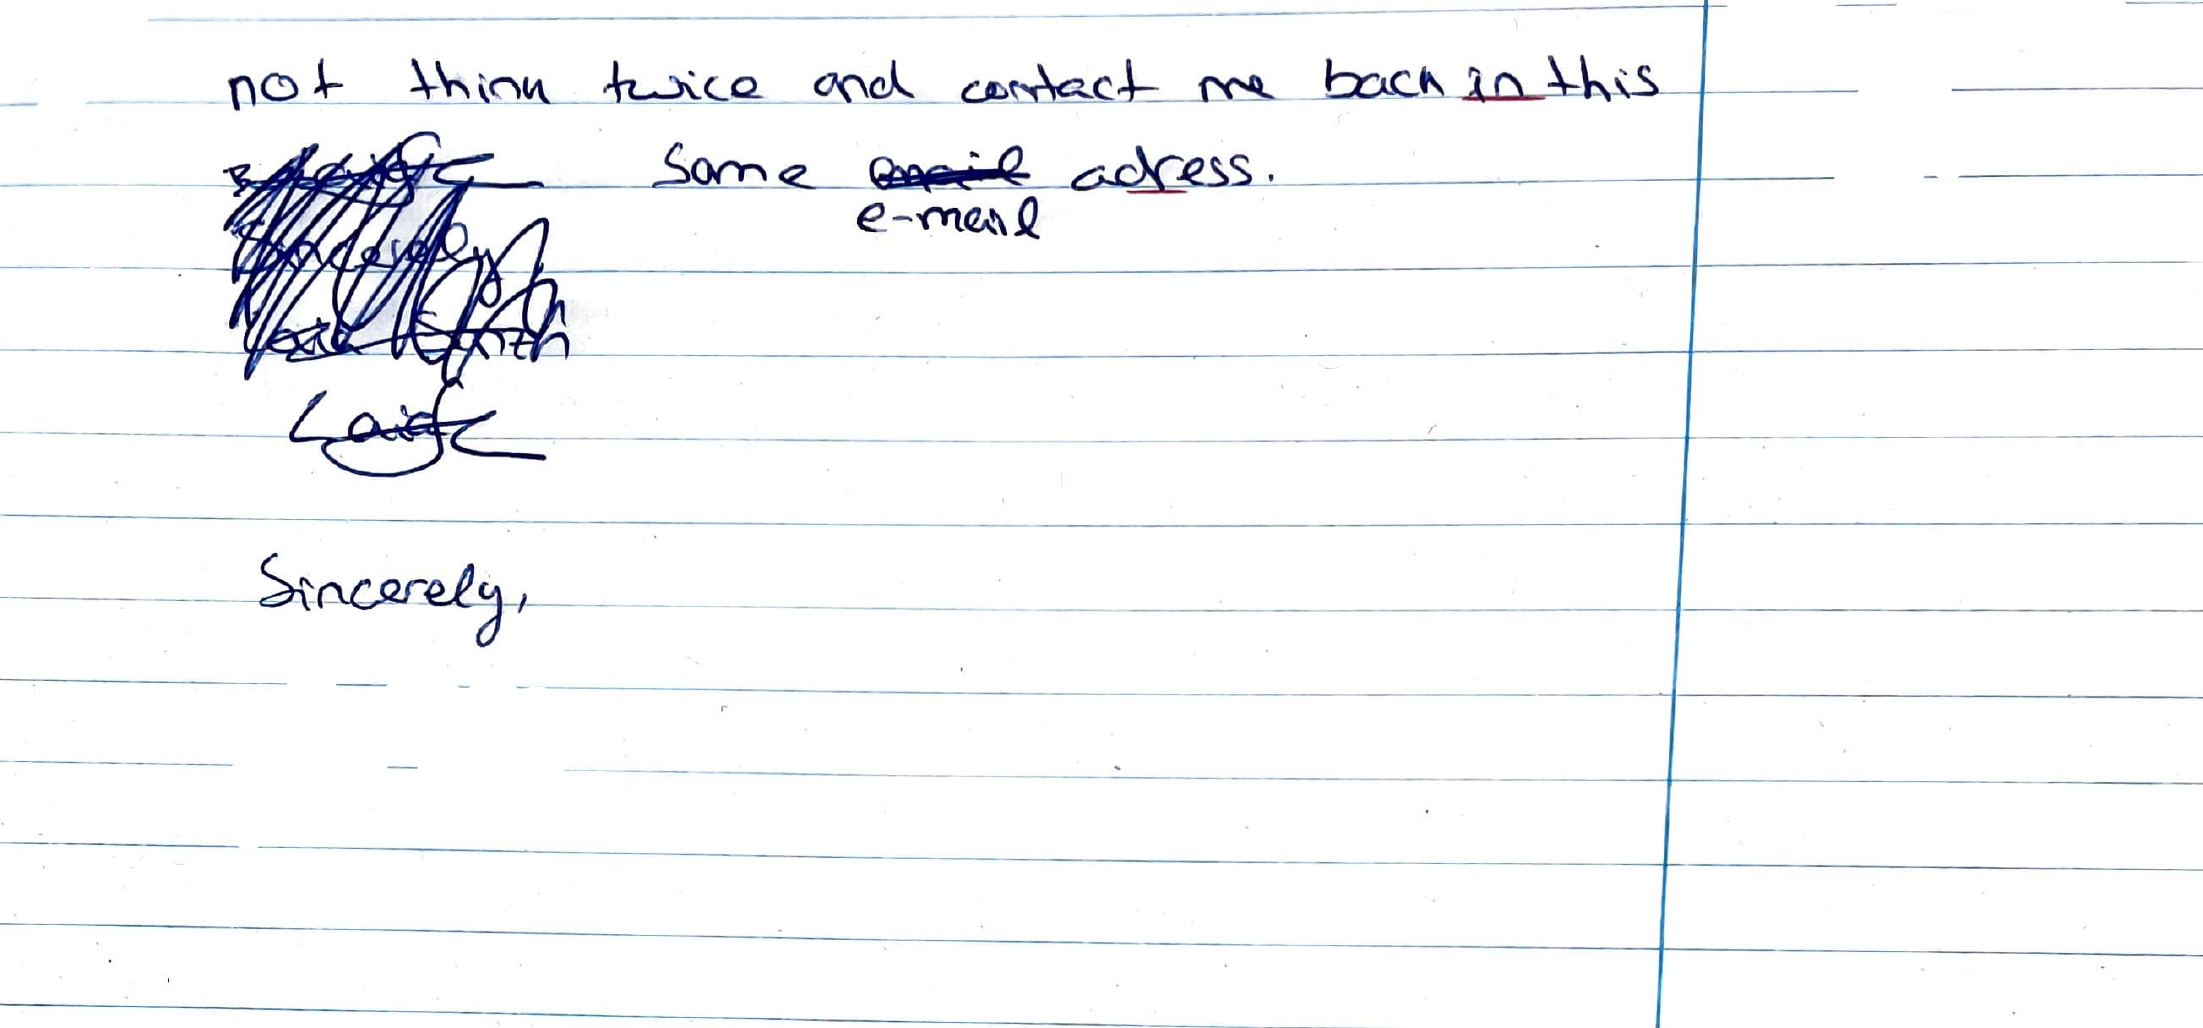 not think twice and contact me back in this
same email adress.
e-mail
Sincerely,